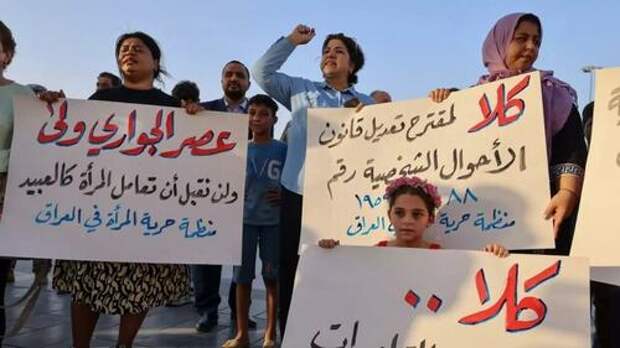 عصر الجواري ولى
ولن نقبل أن تعامل المرأة كالعبيد
منظمة حرية المرأة في العراق
كلا لمقترح تعديل قانون
الأحوال الشخصية رقم
٨٨ ١٩٥
منظمة حرية في العراق
كلا ..